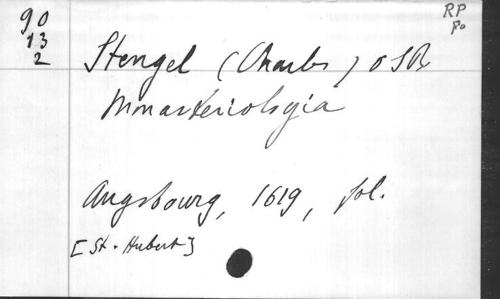 90
13
2
RP
fo
Stengel (Charles) OSB
Monasteriologia
Augsbourg, 1619, fol.
[St. Hubert]